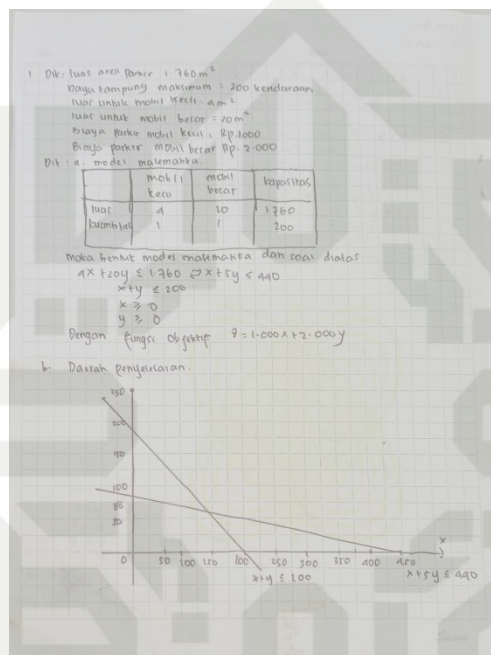 1 Dik: luas area parkir 1.760 m²
Daya tampung maksimum : 200 kendaraan
luas untuk mobil kecil : 4 m²
luas untuk mobil besar = 20 m²
Biaya parkir mobil kecil = Rp.1000
Biaya parkir mobil besar Rp. 2.000
Dit : a. model matematika.
mobil kecil mobil besar kapasitas
luas 4 20 1760
kuantitas 1 1 200
maka bentuk model matematika dari soal diatas
4x + 20y ≤ 1.760 ⇔ x + 5y ≤ 440
x+y ≤ 200
x ≥ 0
y ≥ 0
Dengan fungsi objektif z = 1.000x + 2.000y
b. Daerah penyelesaian.
250
200
100
88
50
x
0 50 100 150 200 250 300 350 400 450
x+y ≤ 200
x+5y ≤ 440